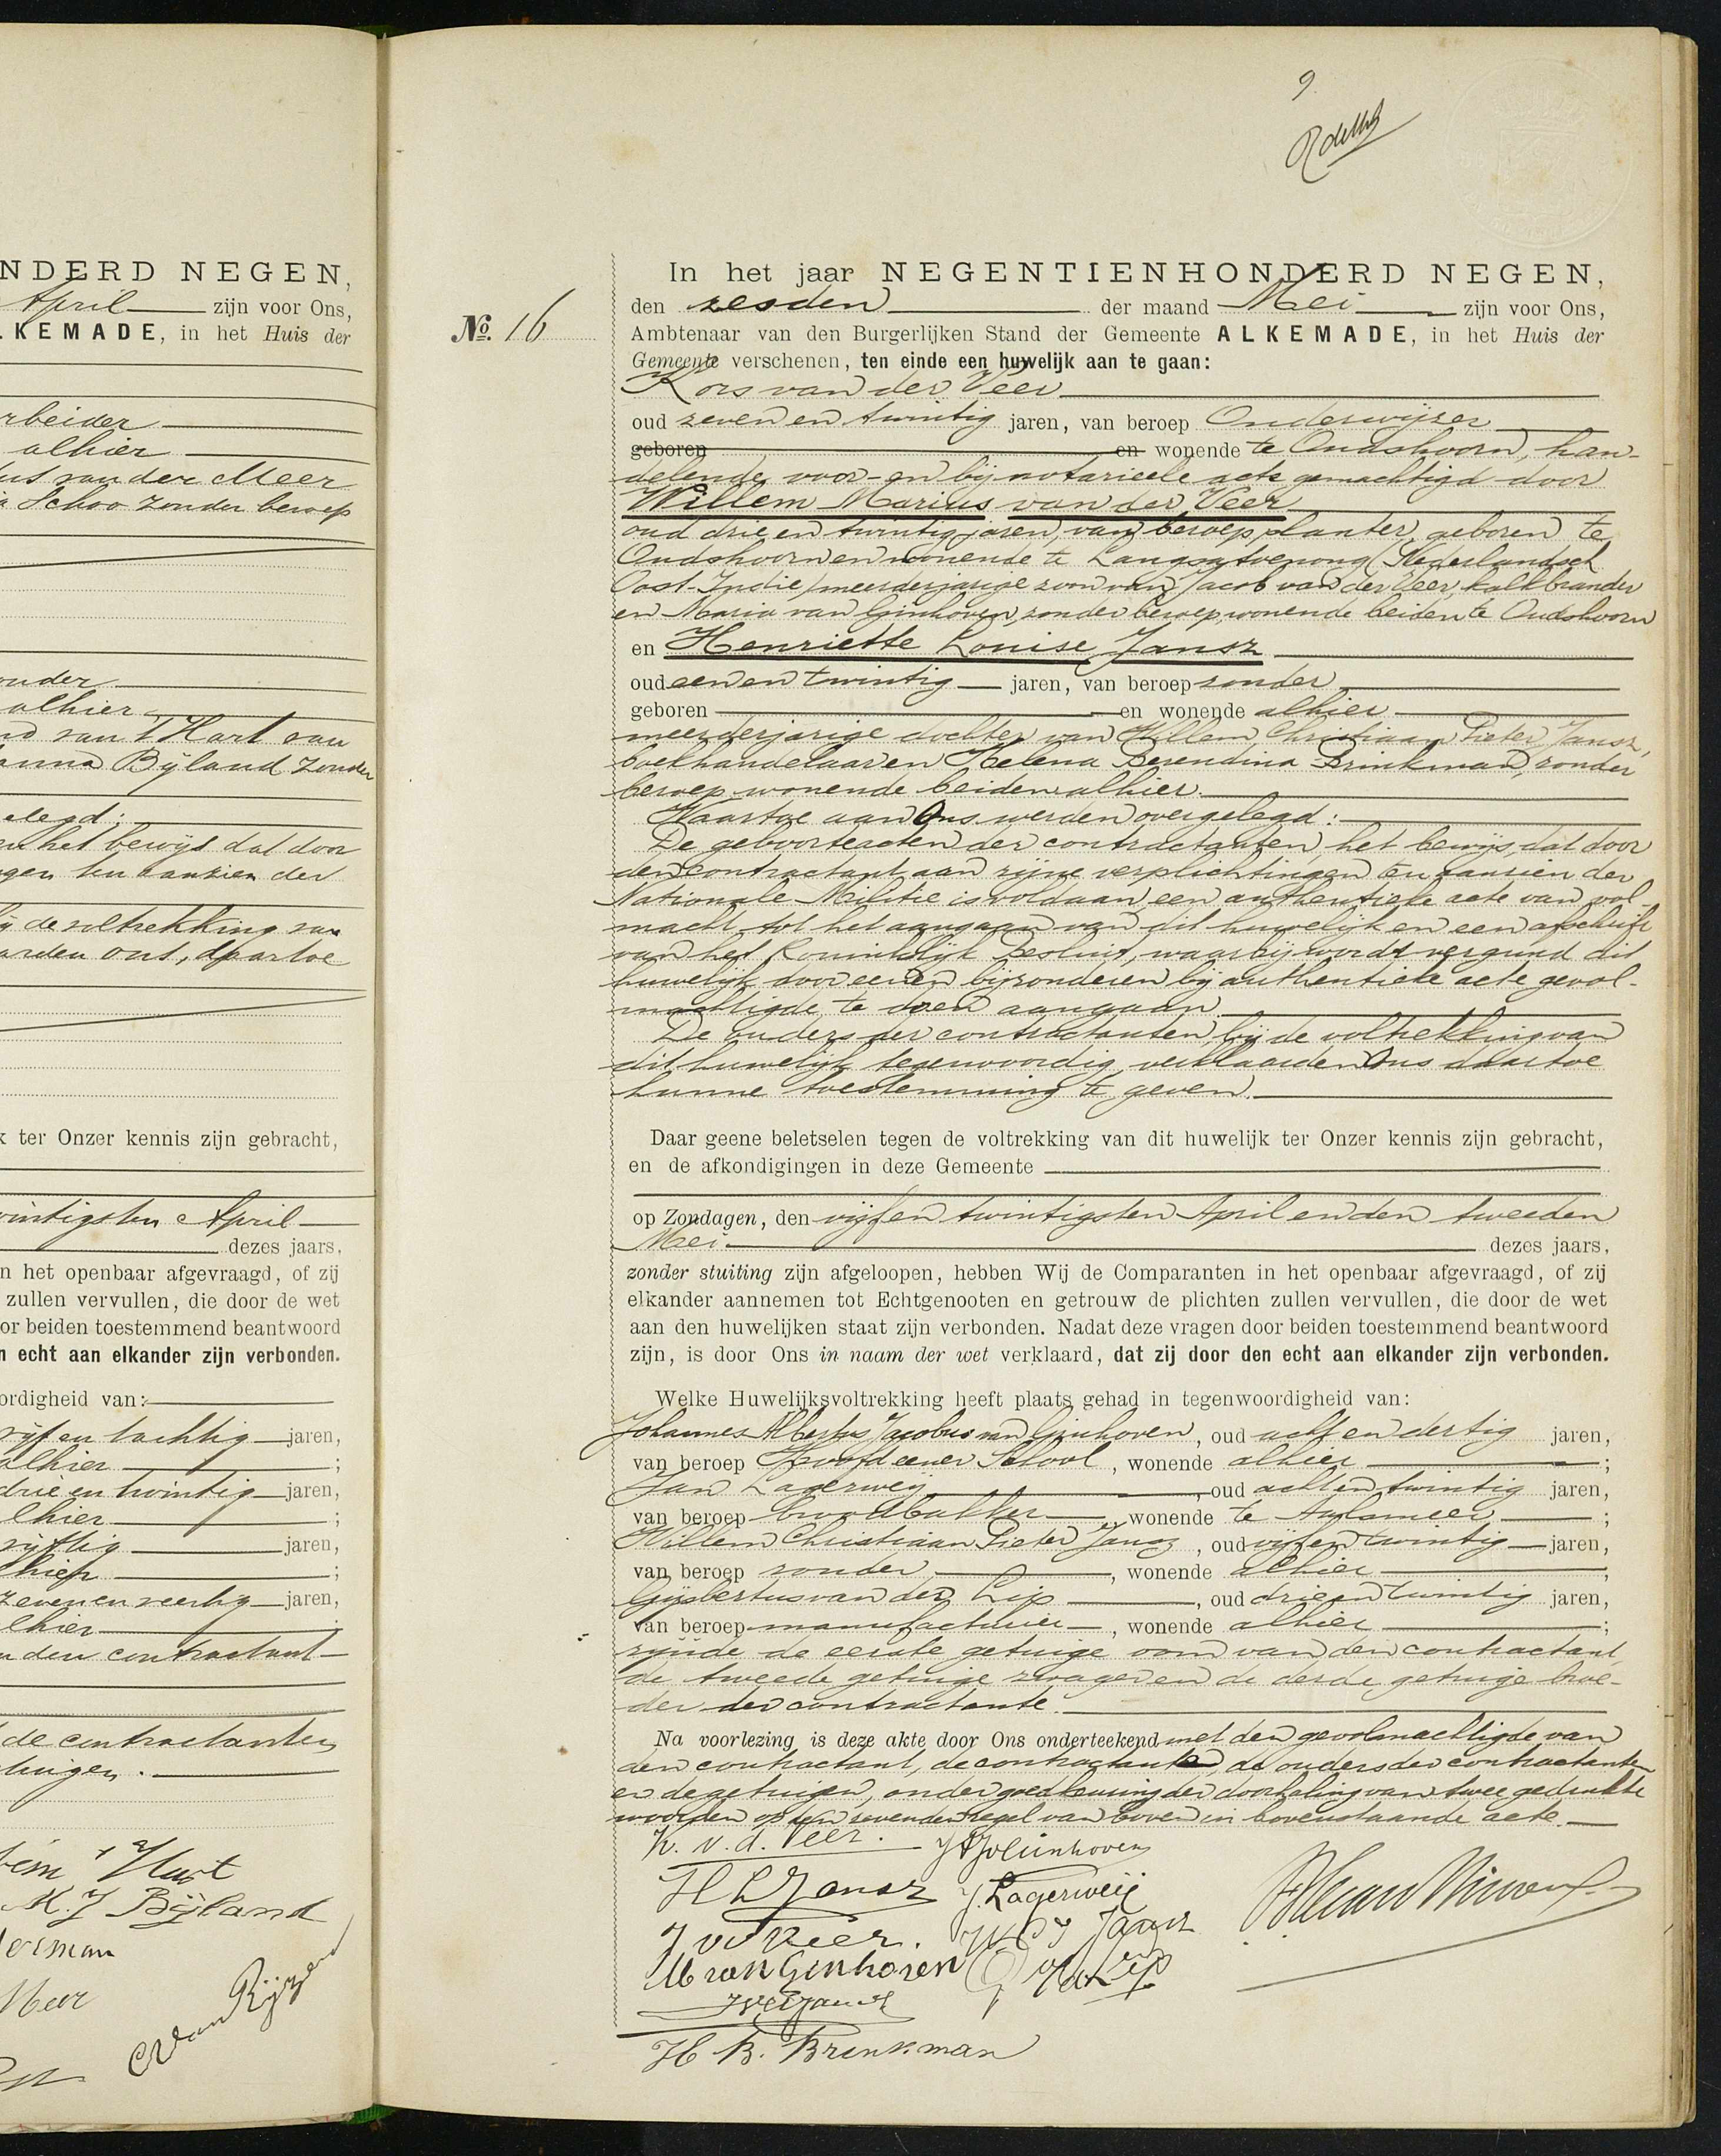 NDERD NEGEN,
April zijn voor Ons,
LKEMADE, in het Huis der
rbeider
alhier
us van der Meer
a Schoo zonder beroep
onder
alhier
nd van 't Hart van
anna Bijland zonder
elegd:
en het bewijs dat door
gen ten aanzien der
ij de voltrekking van
arden ons, daartoe
k ter Onzer kennis zijn gebracht,
wintigsten April
dezes jaars,
n het openbaar afgevraagd, of zij
zullen vervullen, die door de wet
or beiden toestemmend beantwoord
n echt aan elkander zijn verbonden.
ordigheid van:
vijf en tachtig jaren,
alhier ;
drie en twintig jaren,
lhier ;
vijftig jaren,
lhier ;
zeven en veertig jaren,
lhier ;
n den contractant
de contractanten
tuigen.
't Hart
M. J Bijland
erman
Meer
C van Rijzen
9
No. 16
In het jaar NEGENTIENHONDERD NEGEN,
den zesden der maand Mei zijn voor Ons,
Ambtenaar van den Burgerlijken Stand der Gemeente ALKEMADE, in het Huis der
Gemeente verschenen, ten einde een huwelijk aan te gaan:
Kors van der Veer
oud zeven en twintig jaren, van beroep Onderwijzer
geboren en wonende te Oudshoorn, han-
delende voor- en bij notarieele acte gemachtigd door
Willem Marius van der Veer
oud drie en twintig jaren, van beroep planter, geboren te
Oudshoorn en wonende te Langsa toenong (Nederlandsch
Oost-Indie) meerderjarige zoon van Jacob van der Veer, kalkbrander
en Maria van Ginhoven, zonder beroep, wonende beiden te Oudshoorn
en Henriette Louise Jansz
oud een en twintig jaren, van beroep zonder
geboren en wonende alhier
meerderjarige dochter van Willem Christiaan Pieter Jansz,
boekhandelaar en Helena Berendina Brinkman, zonder
beroep wonende beiden alhier.
Waartoe aan Ons werden overgelegd:
De geboorteacten der contractanten, het bewijs, dat door
den contractant aan zijne verplichtingen ten aanzien der
Nationale Militie is voldaan, een authentieke acte van vol-
macht tot het aangaan van dit huwelijk en een afschrift
van het Koninklijk Besluit, waarbij wordt vergund dit
huwelijk door eenen bijzonderen bij authentieke acte gevol-
machtigde te doen aangaan.
De ouders der contractanten, bij de voltrekking van
dit huwelijk tegenwoordig, verklaarden Ons daartoe
hunne toestemming te geven.
Daar geene beletselen tegen de voltrekking van dit huwelijk ter Onzer kennis zijn gebracht,
en de afkondigingen in deze Gemeente
op Zondagen, den vijf en twintigsten April en den tweeden
Mei dezes jaars,
zonder stuiting zijn afgeloopen, hebben Wij de Comparanten in het openbaar afgevraagd, of zij
elkander aannemen tot Echtgenooten en getrouw de plichten zullen vervullen, die door de wet
aan den huwelijken staat zijn verbonden. Nadat deze vragen door beiden toestemmend beantwoord
zijn, is door Ons in naam der wet verklaard, dat zij door den echt aan elkander zijn verbonden.
Welke Huwelijksvoltrekking heeft plaats gehad in tegenwoordigheid van:
Johannes Albertus Jacobus van Ginhoven, oud acht en dertig jaren,
van beroep Hoofd eener School, wonende alhier ;
Jan Lagerweij, oud acht en twintig jaren,
van beroep boekhouder, wonende te Aalsmeer ;
Willem Christiaan Pieter Jansz, oud vijf en twintig jaren,
van beroep zonder, wonende alhier ;
Gijsbertus van der Lip, oud drie en twintig jaren,
van beroep manufacturier, wonende alhier ;
zijnde de eerste getuige oom van den contractant,
de tweede getuige zwager en de derde getuige broe-
der der contractante.
Na voorlezing is deze akte door Ons onderteekend met den gevolmachtigde van
den contractant, de contractante, de ouders der contractanten
en de getuigen, onder goedkeuring der doorhaling van twee gedrukte
woorden op den zevenden regel van boven in bovenstaande acte.
K. v. d. Veer.
H L Jansz
J. Lagerweij
J vd Veer.
W C P Jansz
M van Ginhoven
G vd Lip
H. B. Brinkman